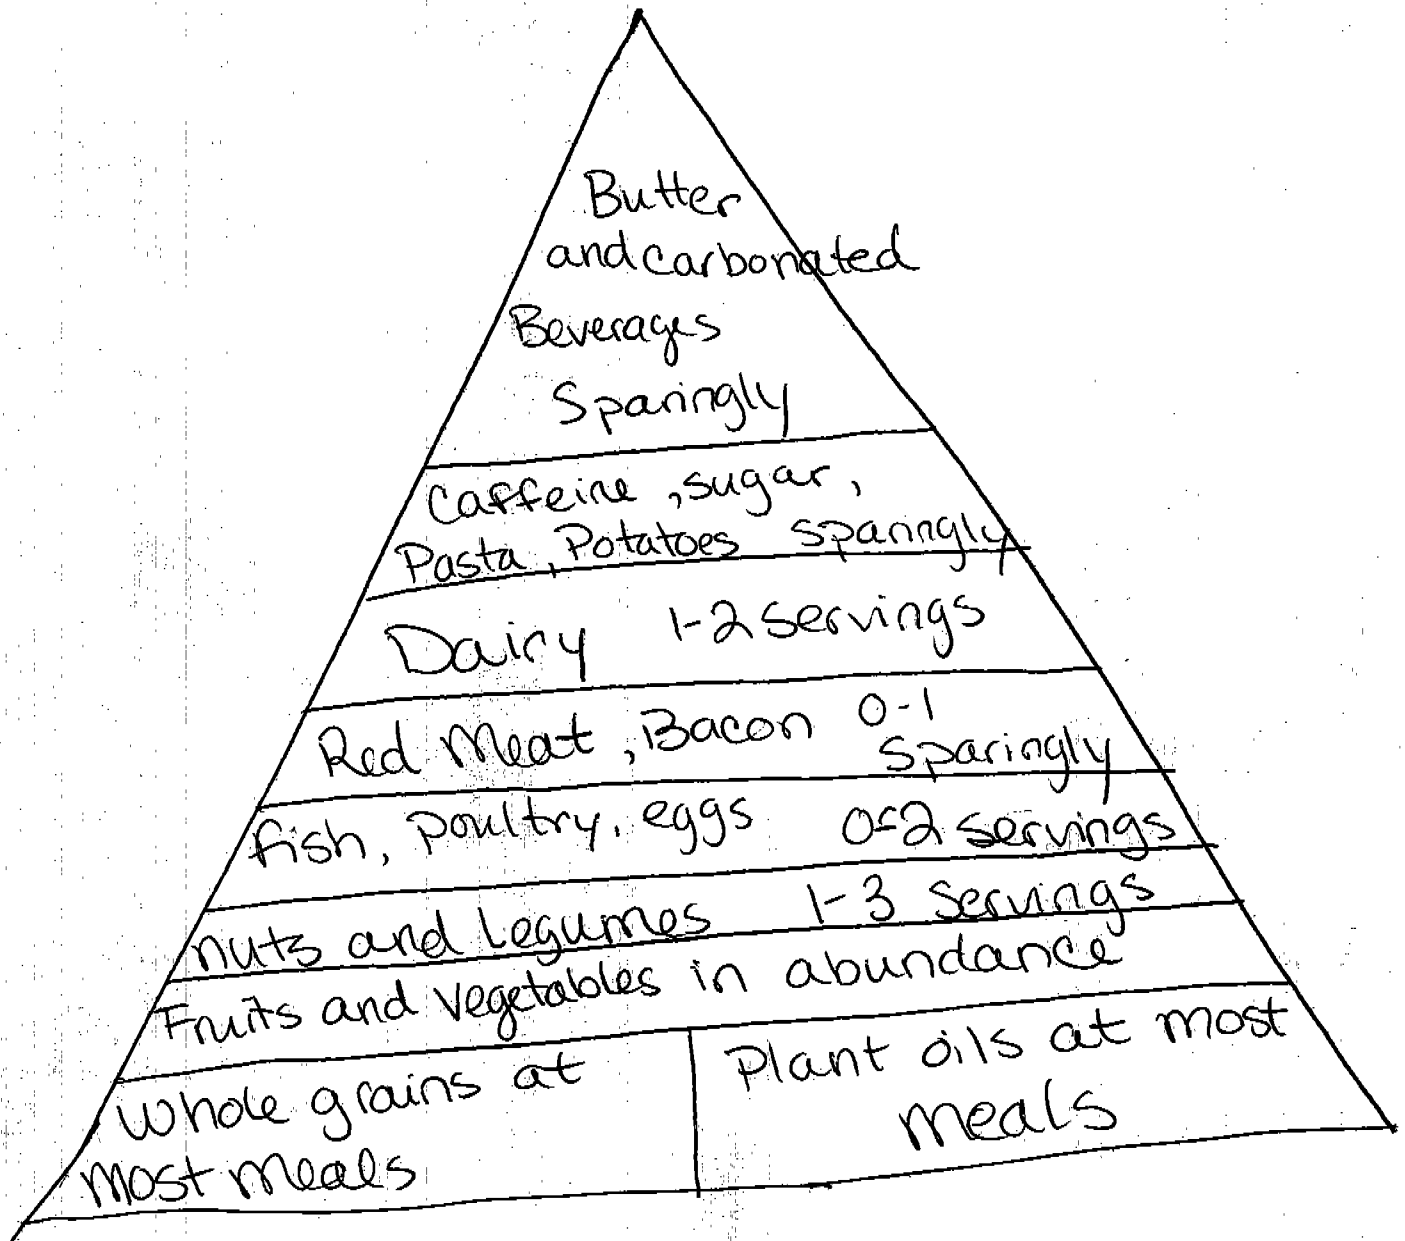 Butter
and carbonated
Beverages
Sparingly
Caffeine, sugar,
Pasta, Potatoes sparingly
Dairy 1-2 servings
Red Meat, Bacon 0-1
Sparingly
fish, poultry, eggs 0-2 servings
nuts and legumes 1-3 servings
Fruits and vegetables in abundance
Whole grains at
most meals
Plant oils at most
meals